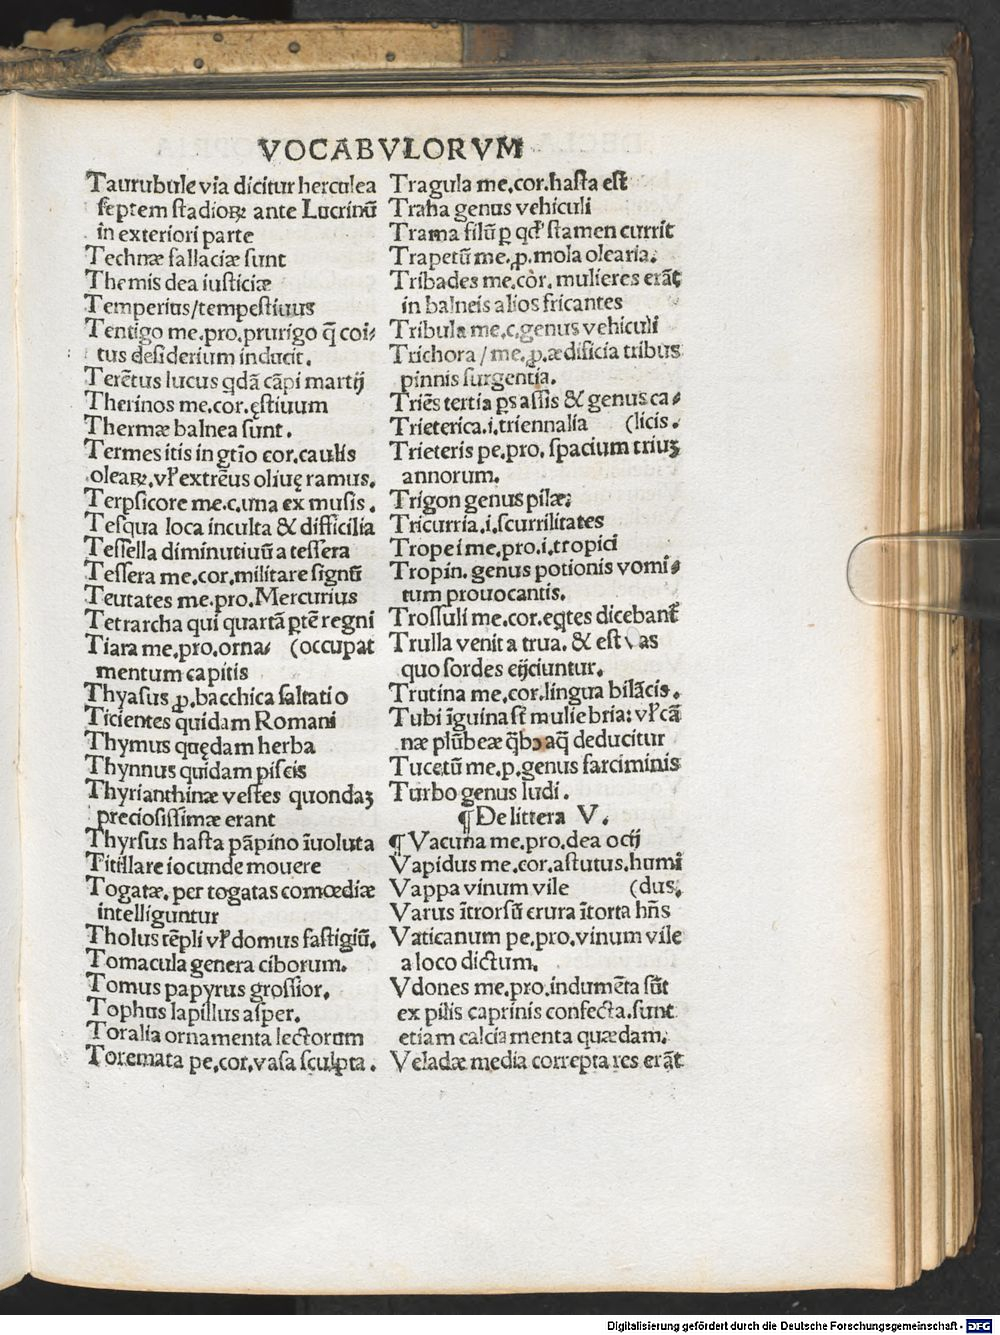 VOCABVLORVM
Taurubule via dicitur herculea
septem stadioꝝ ante Lucrinū
in exteriori parte
Technæ fallaciæ sunt
Themis dea iusticiæ
Temperius/tempestiuus
Tentigo me.pro.prurigo q̄ coi⸗
tus desiderium inducit.
Terētus lucus qdā cāpi martij
Therinos me.cor.ęstiuum
Thermæ balnea sunt.
Termes itis in gtīo cor.caulis
oleaꝝ.vł extrēus oliuę ramus.
Terpsicore me.c.una ex musis.
Tesqua loca inculta & difficilia
Tessella diminutiuū a tessera
Tessera me.cor.militare signū
Teutates me.pro.Mercurius
Tetrarcha qui quartā ptē regni
Tiara me.pro.orna⸗ (occupat
mentum capitis
Thyasus ꝓ.bacchica saltatio
Ticientes quidam Romani
Thymus quędam herba
Thynnus quidam piscis
Thyrianthinæ vestes quondaꝫ
preciosissimæ erant
Thyrsus hasta pāpino īuoluta
Titillare iocunde mouere
Togatæ.per togatas comœdiæ
intelliguntur
Tholus tēpli vł domus fastigiū.
Tomacula genera ciborum.
Tomus papyrus grossior.
Tophus lapillus asper.
Toralia ornamenta lectorum
Toremata pe.cor.vasa sculpta.
Tragula me.cor.hasta est
Traha genus vehiculi
Trama filū ꝑ qđ stamen currit
Trapetū me.ꝓ.mola olearia.
Tribades me.cor.mulieres erāt
in balneis alios fricantes
Tribula me.c.genus vehiculi
Trichora/me.ꝓ.ædificia tribus
pinnis surgentia.
Triēs tertia ps assis & genus ca⸗
Trieterica.i.triennalia (licis.
Trieteris pe.pro.spacium triuꝫ
annorum.
Trigon genus pilæ.
Tricurria.i.scurrilitates
Tropei me.pro.i.tropici
Tropin.genus potionis vomi⸗
tum prouocantis.
Trossuli me.cor.eqtes dicebant̃
Trulla venit a trua.& est vas
quo sordes eijciuntur.
Trutina me.cor.lingua bilācis.
Tubi īguina st̄ muliebria:vł cā
næ plūbeæ q̄bꝫ aq̄ deducitur
Tucetū me.p.genus farciminis
Turbo genus ludi.
¶ De littera V.
¶ Vacuna me.pro.dea ocij
Vapidus me.cor.astutus.humi
Vappa vinum vile (dus.
Varus ītrorsū crura ītorta hn̄s
Vaticanum pe.pro.vinum vile
a loco dictum.
Vdones me.pro.indumēta sūt
ex pilis caprinis confecta.sunt
etiam calciamenta quædam.
Veladæ media correpta res erāt
Digitalisierung gefördert durch die Deutsche Forschungsgemeinschaft - DFG